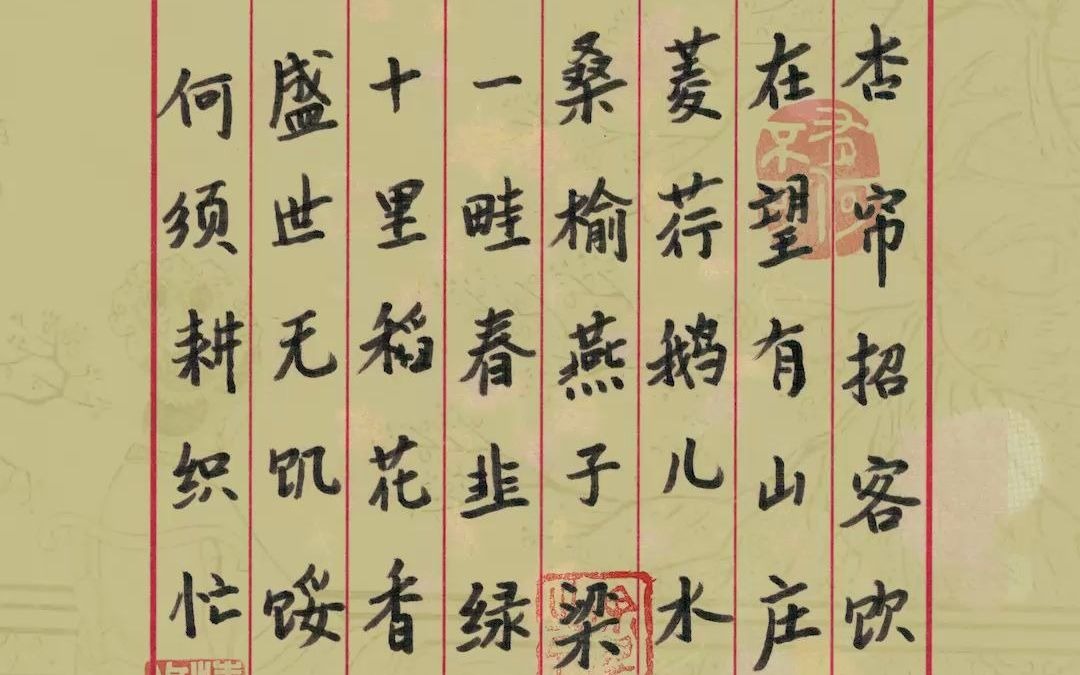 杏帘招客饮
在望有山庄
菱荇鹅儿水
桑榆燕子梁
一畦春韭绿
十里稻花香
盛世无饥馁
何须耕织忙